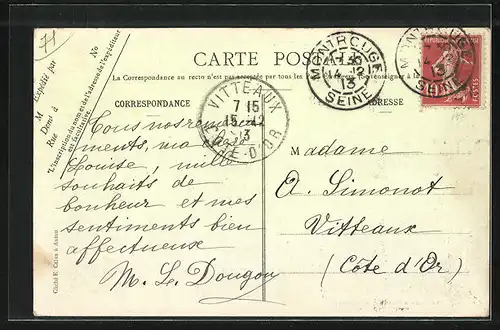 71
M
Expédié par
Demt à
Rue
No
"L'inscription du nom et de l'adresse de l'expéditeur
est facultative.
CARTE POSTALE
La Correspondance au recto n'est pas acceptée par tous les
CORRESPONDANCE
ADRESSE
MONTROUGE
4-12
13
SEINE
MONTROUGE
4-12
13
SEINE
VITTEAUX
7 15
15-12
13
CÔTE-D'OR
Tous nos remerciements, ma
Louise, mille
souhaits de
bonheur et mes
sentiments bien
affectueux
M. L. Dougou
Madame
A. Simonot
Vitteaux
(Côte d'Or)